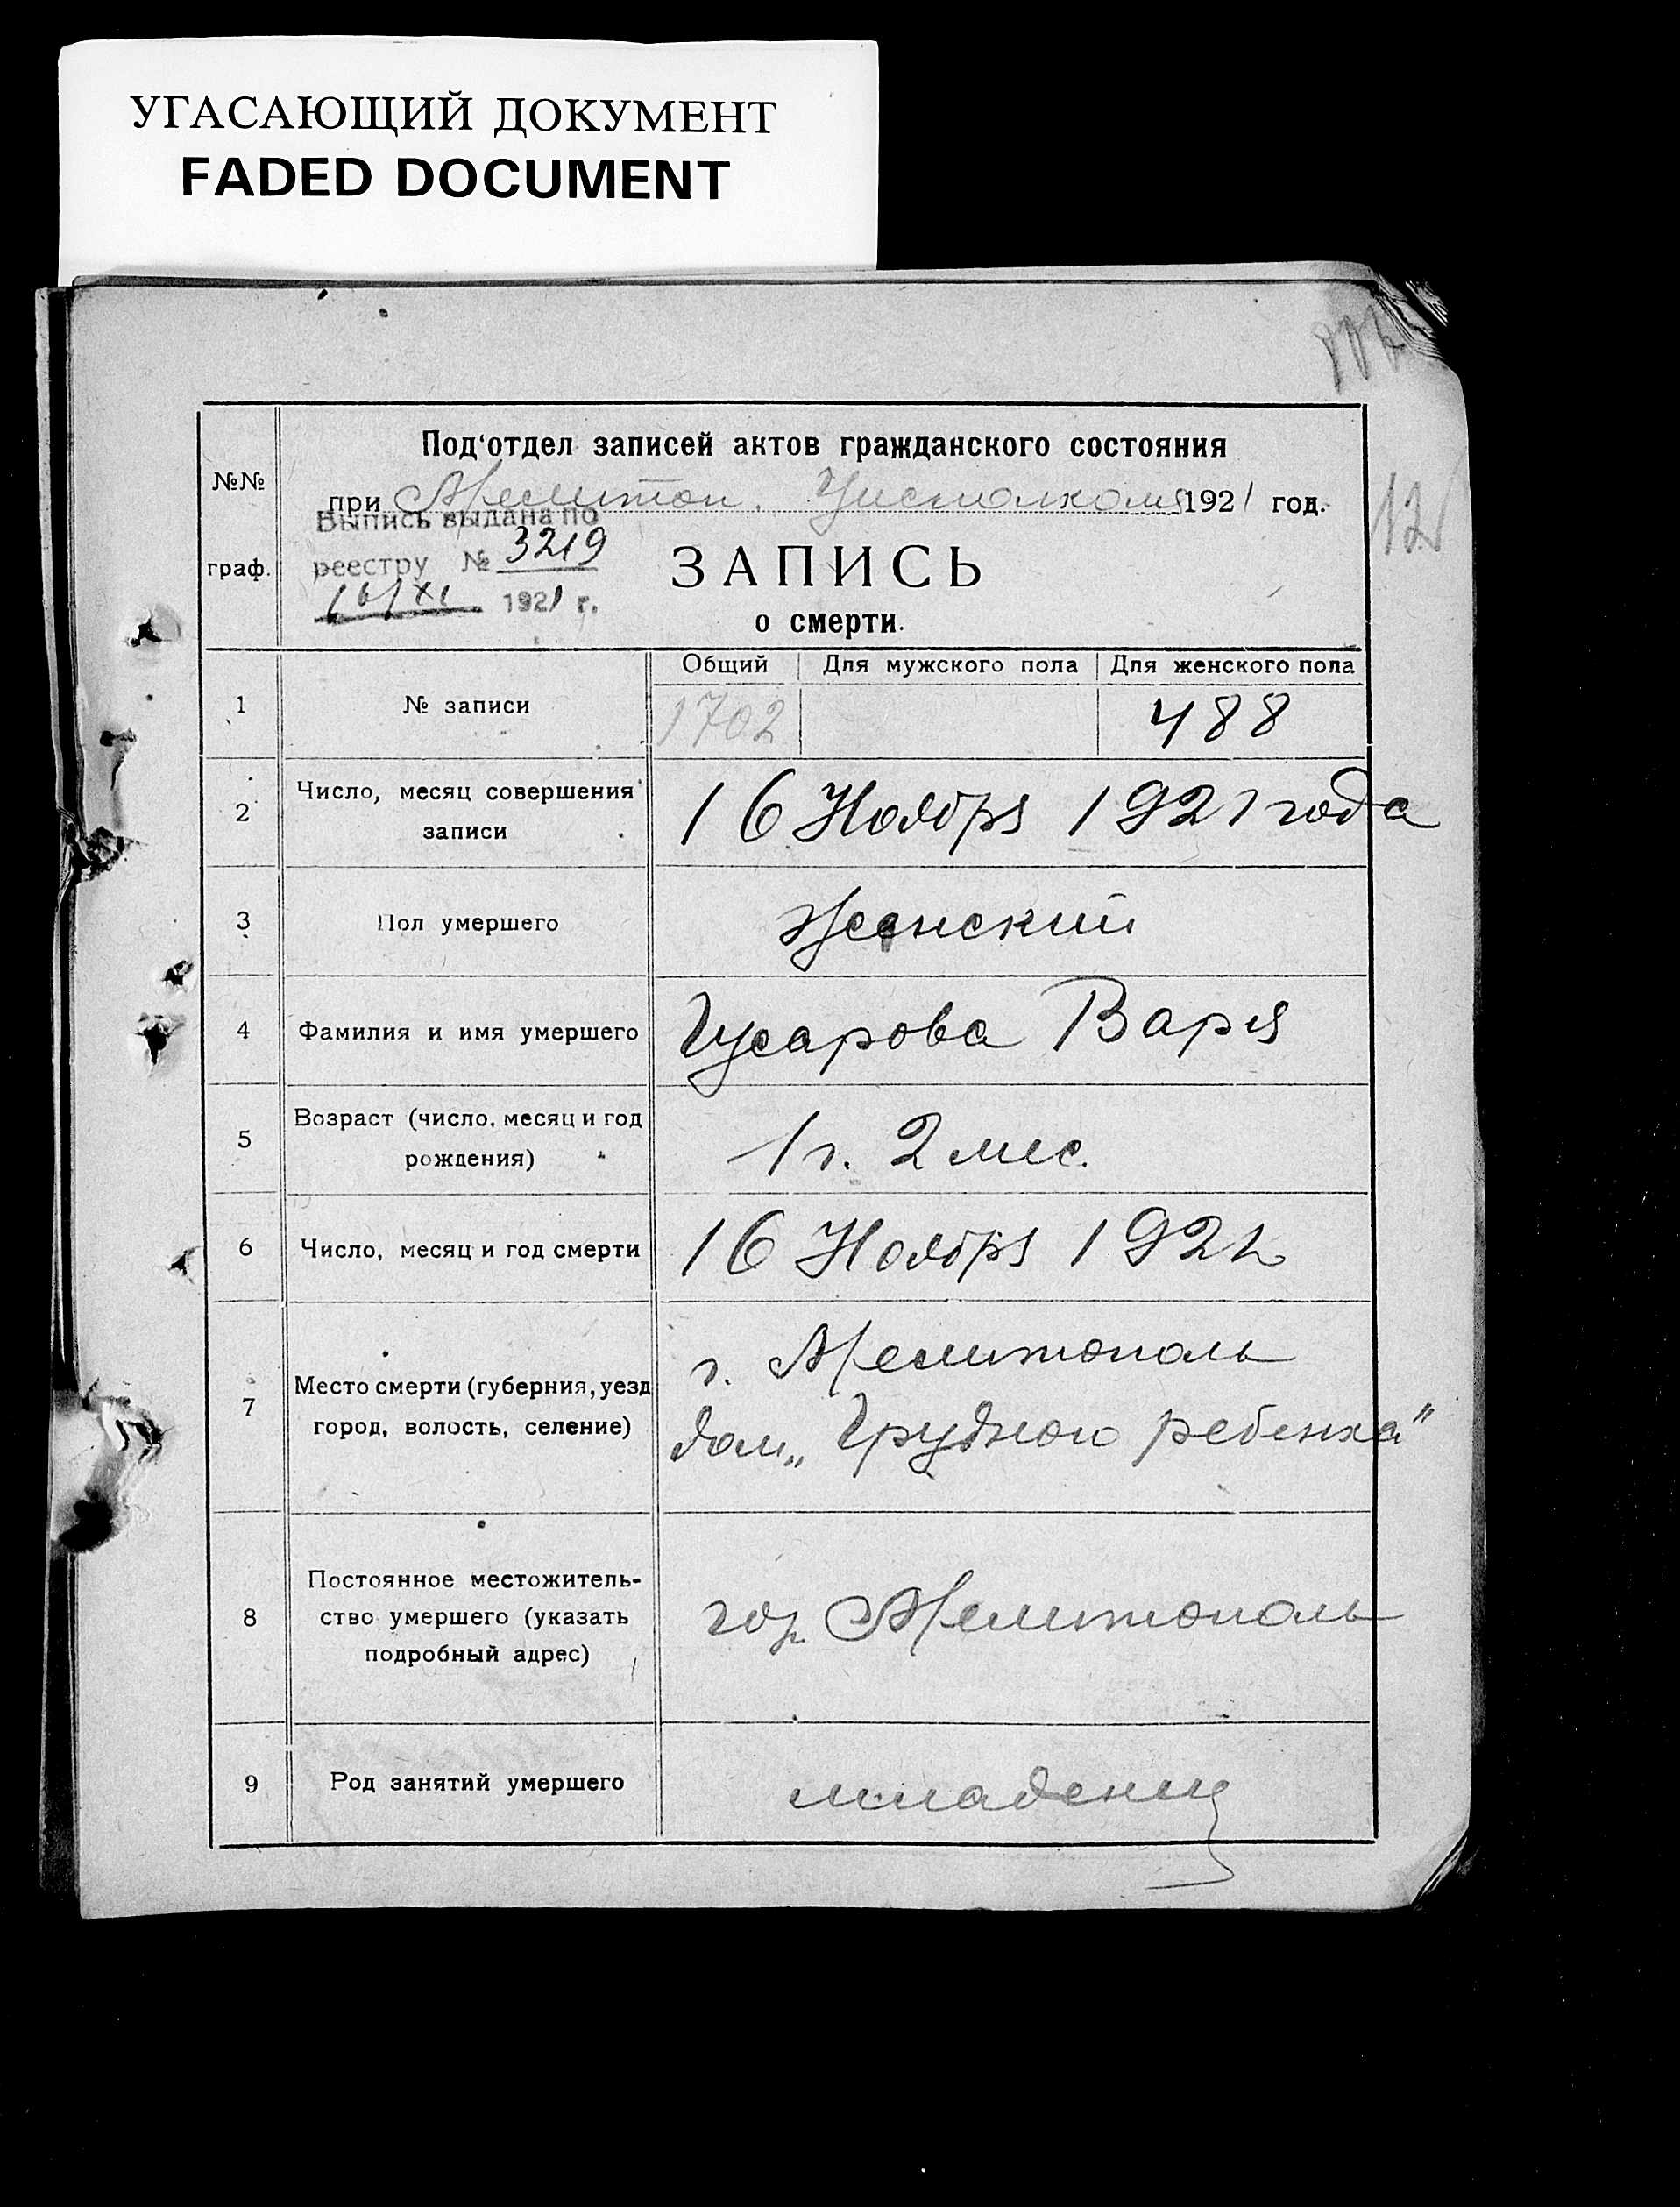 УГАСАЮЩИЙ ДОКУМЕНТ
FADED DOCUMENT
№№
граф.
Под'отдел записей актов гражданского состояния
при Мелитоп. Уисполкоме 1921 год.
Выпись выдана по
реестру № 3219
16/XI 1921 г.
ЗАПИСЬ
о смерти.
12
Общий Для мужского пола Для женского пола
1 № записи 1702 488
2 Число, месяц совершения записи 16 Ноября 1921 года
3 Пол умершего Женский
4 Фамилия и имя умершего Гусарова Варя
5 Возраст (число, месяц и год рождения) 1 г. 2 мес.
6 Число, месяц и год смерти 16 Ноября 1921
7 Место смерти (губерния, уезд город, волость, селение) г. Мелитополь
дом „Грудного ребенка"
8 Постоянное местожитель-
ство умершего (указать
подробный адрес) гор. Мелитополь
9 Род занятий умершего младенец